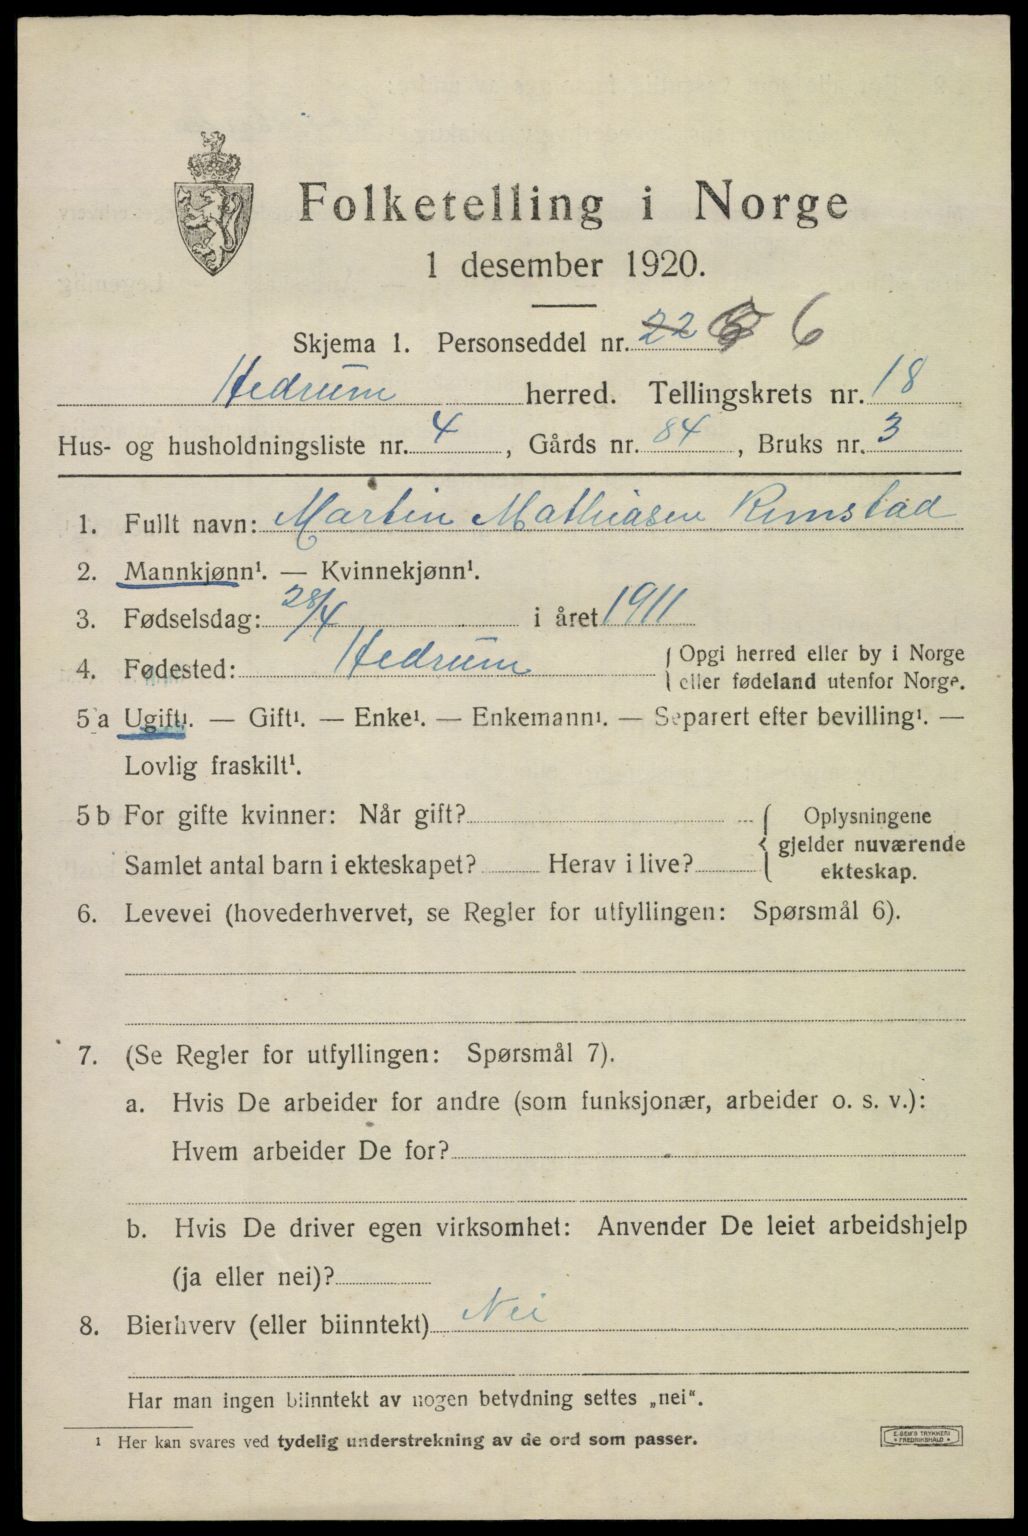 Folketelling i Norge
1 desember 1920.
Skjema 1. Personseddel nr. 22 6
Hedrum herred. Tellingskrets nr. 18
Hus- og husholdningsliste nr. 4, Gårds nr. 84, Bruks nr. 3
1. Fullt navn: Martin Mathiasen Rimstad
2. Mannkjønn¹. — Kvinnekjønn¹.
3. Fødselsdag: 28/4 i året 1911
4. Fødested: Hedrum
Opgi herred eller by i Norge
eller fødeland utenfor Norge.
5 a Ugift¹. — Gift¹. — Enke¹. — Enkemann¹. — Separert efter bevilling¹. —
Lovlig fraskilt¹.
5 b For gifte kvinner: Når gift?
Samlet antal barn i ekteskapet? Herav i live?
Oplysningene
gjelder nuværende
ekteskap.
6. Levevei (hovederhvervet, se Regler for utfyllingen: Spørsmål 6).
7. (Se Regler for utfyllingen: Spørsmål 7).
a. Hvis De arbeider for andre (som funksjonær, arbeider o. s. v.):
Hvem arbeider De for?
b. Hvis De driver egen virksomhet: Anvender De leiet arbeidshjelp
(ja eller nei)?
8. Bierhverv (eller biinntekt) Nei
Har man ingen biinntekt av nogen betydning settes „nei".
¹ Her kan svares ved tydelig understrekning av de ord som passer.
E. SEM'S TRYKKERI
FREDRIKSHALD